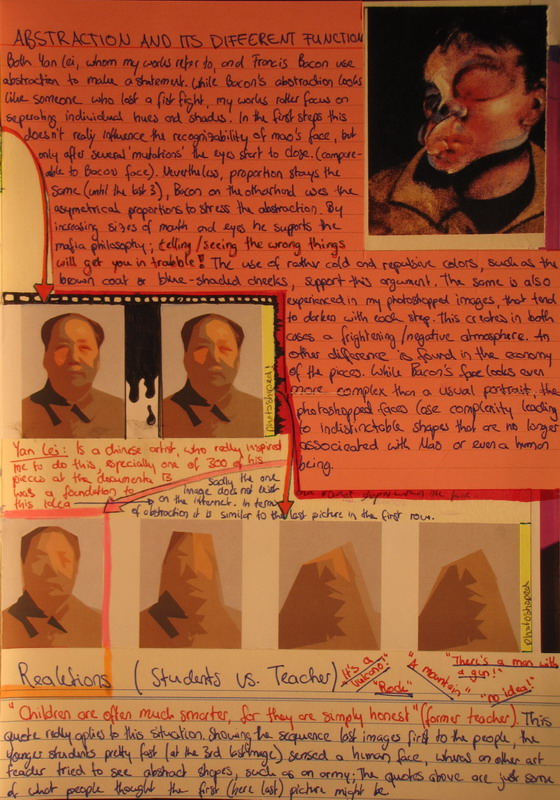 ABSTRACTION AND ITS DIFFERENT FUNCTION
Both Yan Lei, whom my works refer to, and Francis Bacon use
abstraction to make a statement. While Bacon's abstraction looks
like someone who lost a fist fight, my works rather focus on
seperating individual hues and shades. In the first steps this
doesn't really influence the recognizability of mao's face, but
only after several 'mutations' the eyes start to close. (compare-
able to Bacons face). Nevertheless, proportion stays the
same (until the last 3), Bacon on the otherhand uses the
asymetrical proportions to stress the abstraction. By
increasing sizes of mouth and eyes he supports the
mafia philosophy; telling/seeing the wrong things
will get you in trabble! The use of rather cold and repulsive colors, such as the
brown coat or blue-shaded cheeks, support this argument. The same is also
experienced in my photoshopped images, that tend
to darken with each step. This creates in both
cases a frightening/negative atmosphere. An
other difference is found in the economy
of the pieces. While Bacon's face looks even
more complex than a usual portrait, the
photoshopped faces lose complexity leading
to indistinctable shapes that are no longer
associated with Mao or even a human
being.
photoshoped!
Yan Lei: Is a chinese artist, who really inspired
me to do this, especially one of 300 of his
pieces at the documenta 13
was a foundation to
this idea
Sadly the one
image does not exist
on the internet. In terms
of abstraction it is similar to the last picture in the first row.
photoshoped
Reaktions (Students vs. Teacher)
"It's a
vulcano!"
"Rock"
"A mountain"
"There's a man with
a gun!"
"no idea!"
"Children are often much smarter, for they are simply honest" (former teacher). This
quote really applies to this situation. Showing the sequence last images first to the people, the
younger students pretty fast (at the 3rd last image) sensed a human face, whereas on other art
teacher tried to see abstract shapes, such as an army; The quotes above are just some
of what people thought the first (here last) picture might be